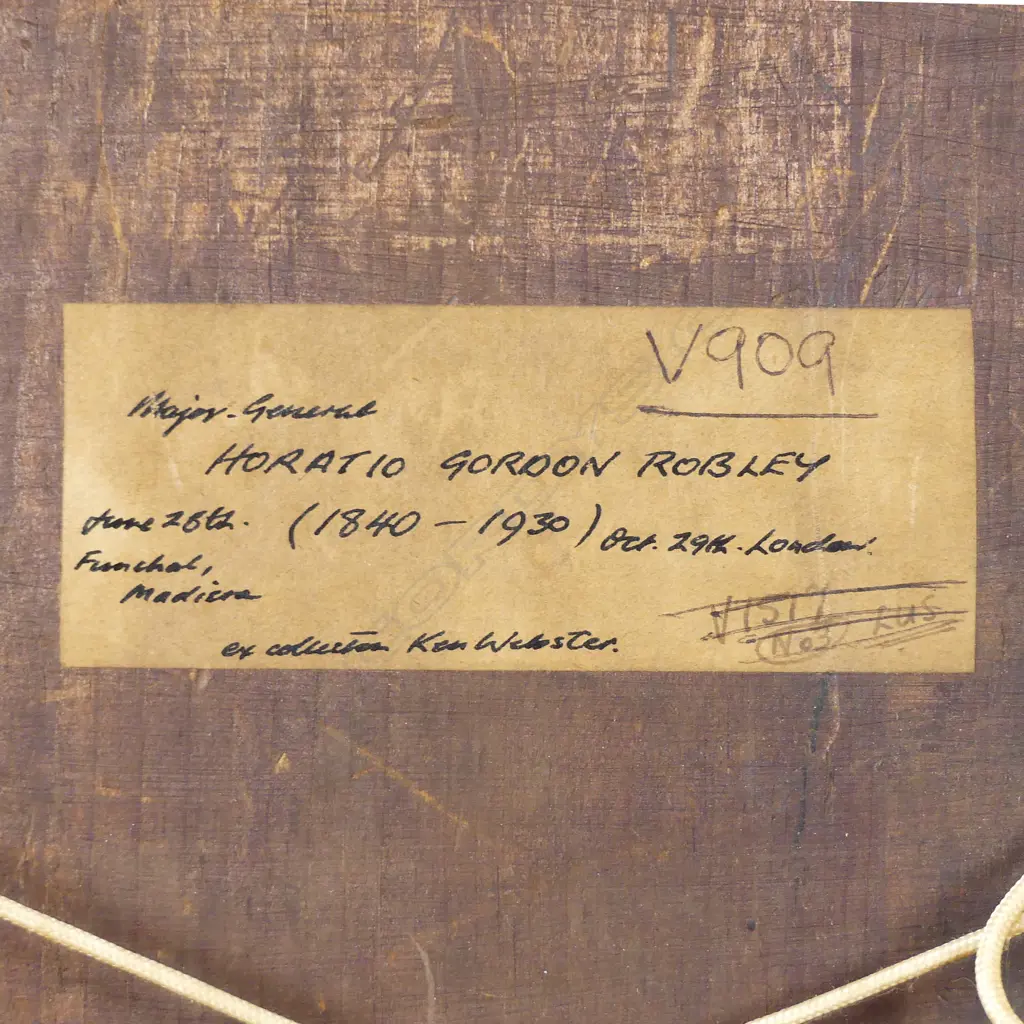 V909
Major-General
HORATIO GORDON ROBLEY
June 28th. (1840 - 1930) Oct. 29th. London.
Funchal,
Madiera
ex collection Ken Webster.
V1517
No3 LUS